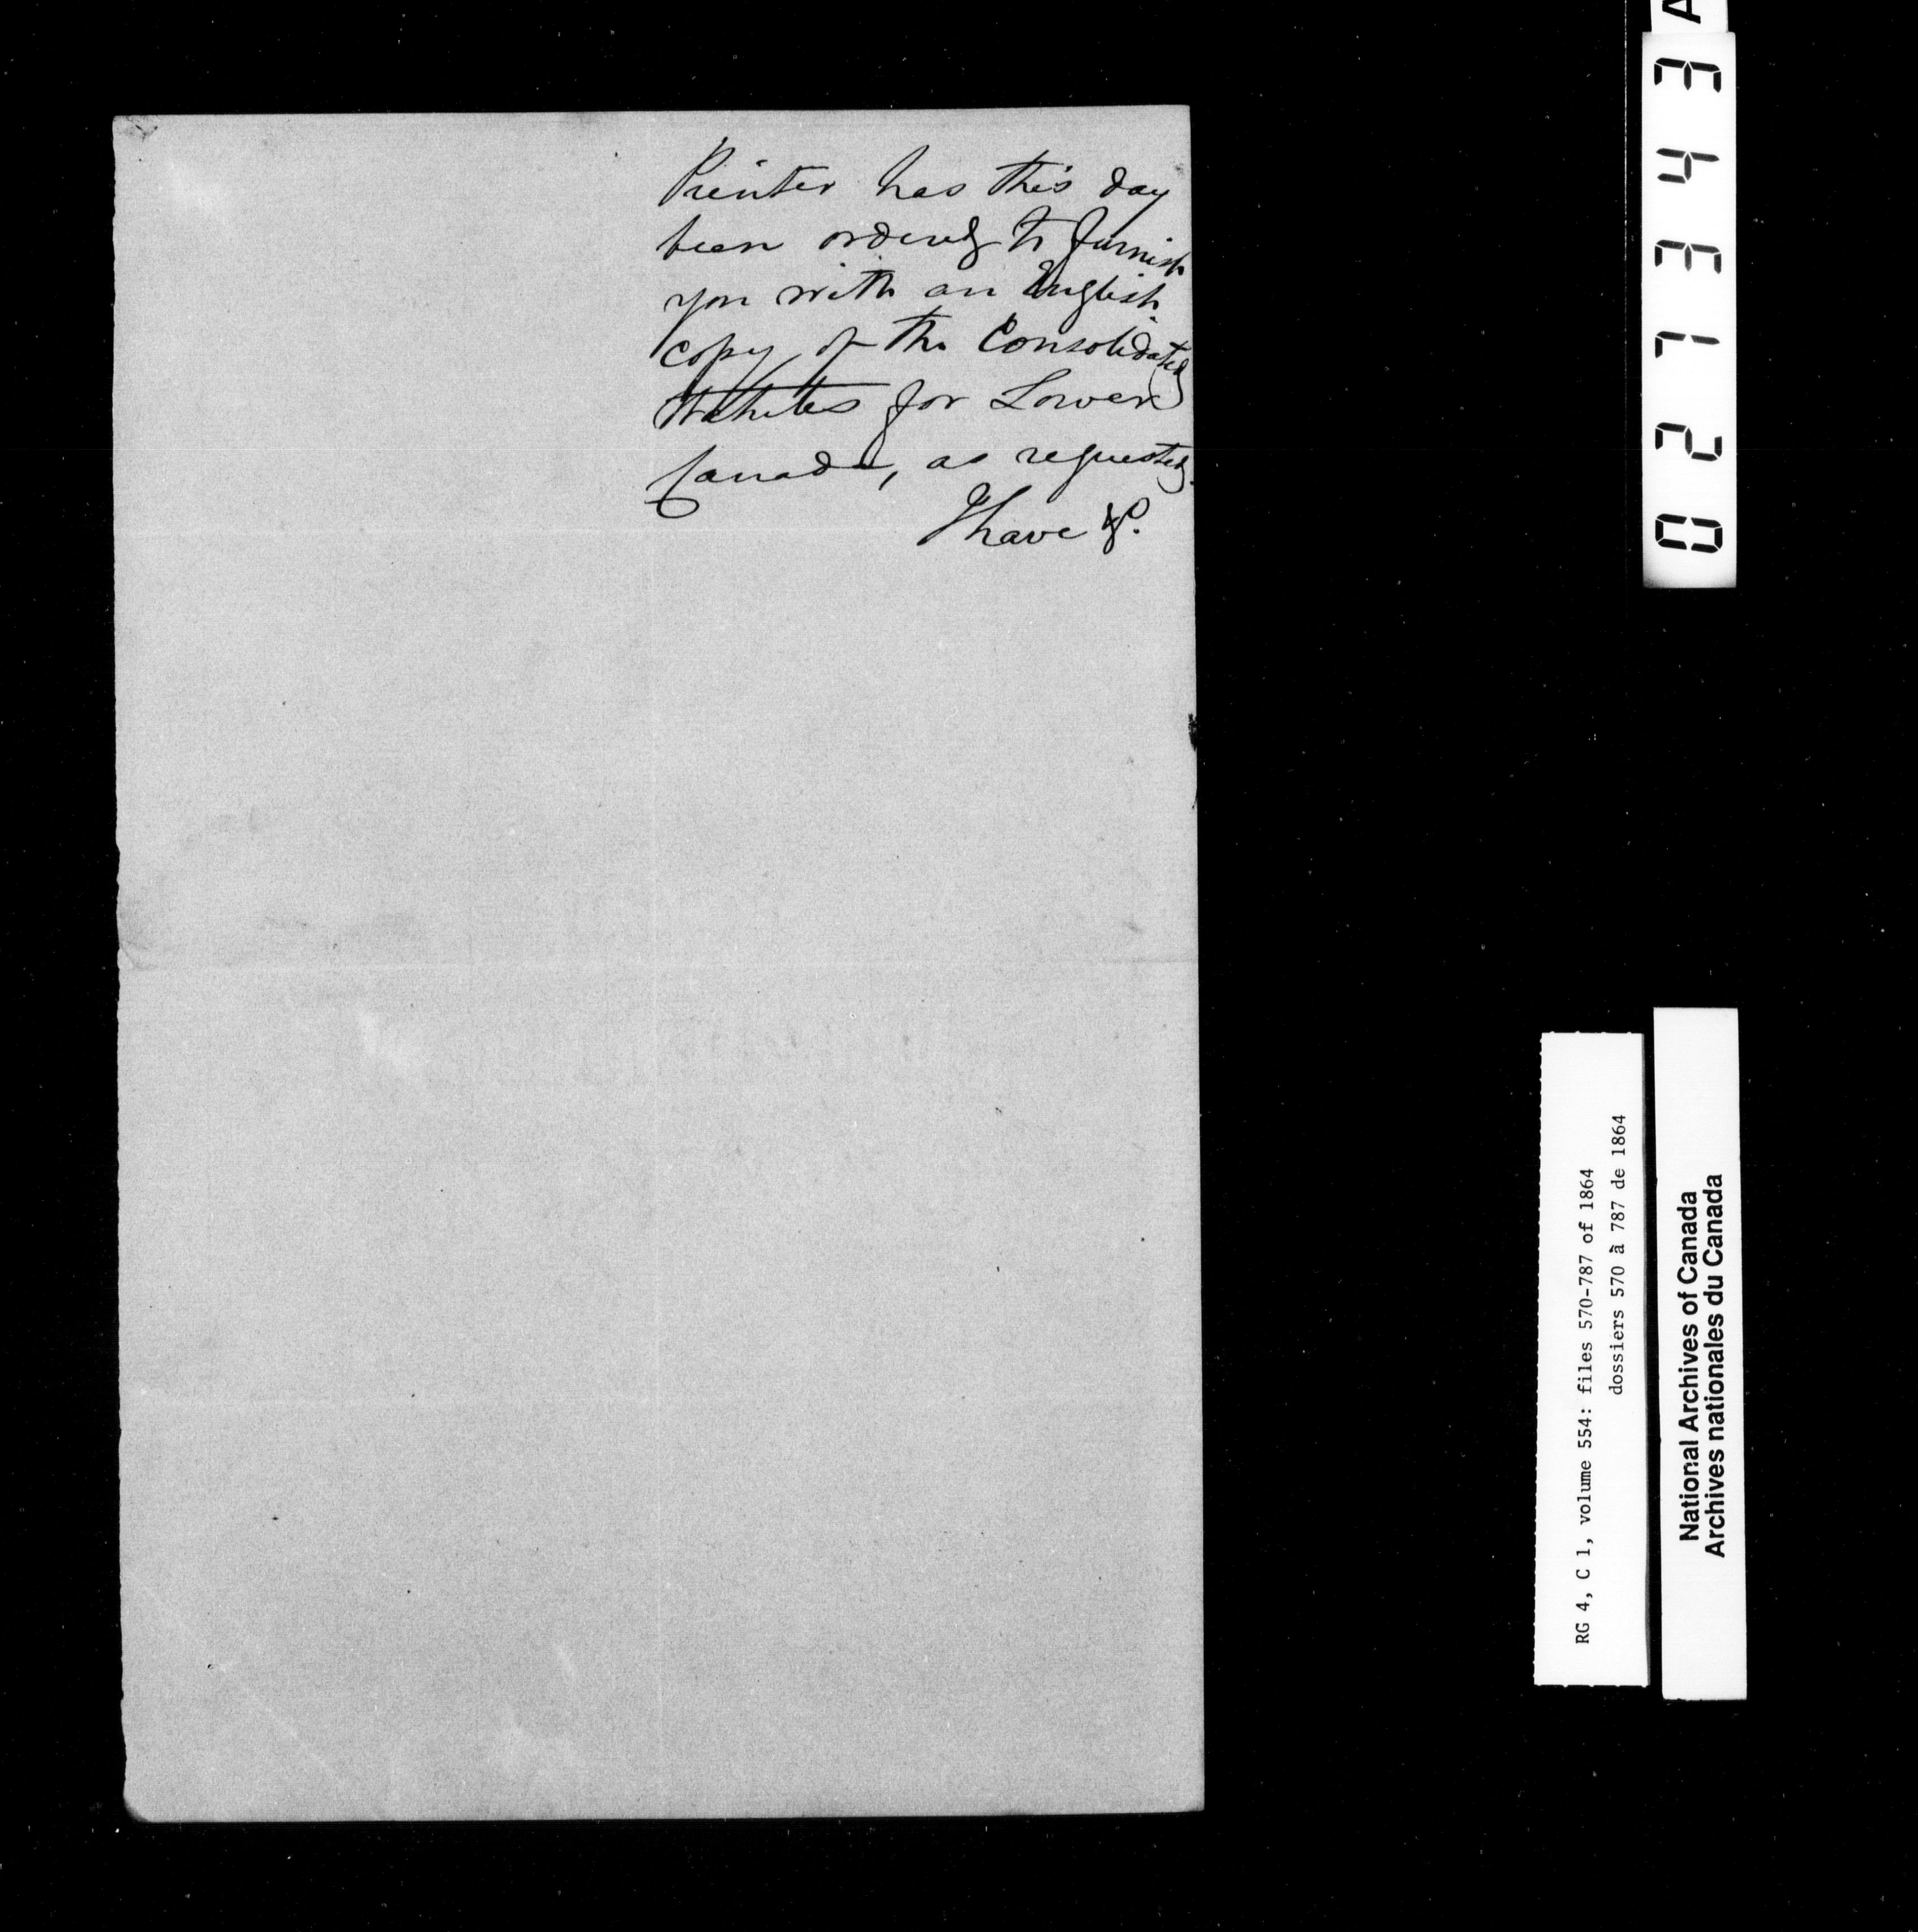 Printer has this day
been ordered to furnish
you with an English
copy of the Consolidated
Statutes for Lower
Canada, as requested.
I have &c.
027343
A
RG 4, C 1, volume 554: files 570-787 of 1864
dossiers 570 à 787 de 1864
National Archives of Canada
Archives nationales du Canada